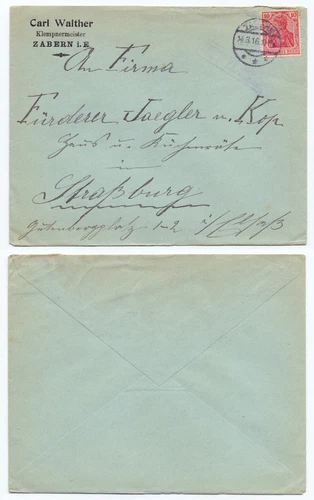 Carl Walther
Klempnermeister
ZABERN i. E.
An Firma
Fürderer Jaegler u. Kop
Haus u. Küchenräte
in
Straßburg
Gutenbergplatz 1-2 i/Elsaß